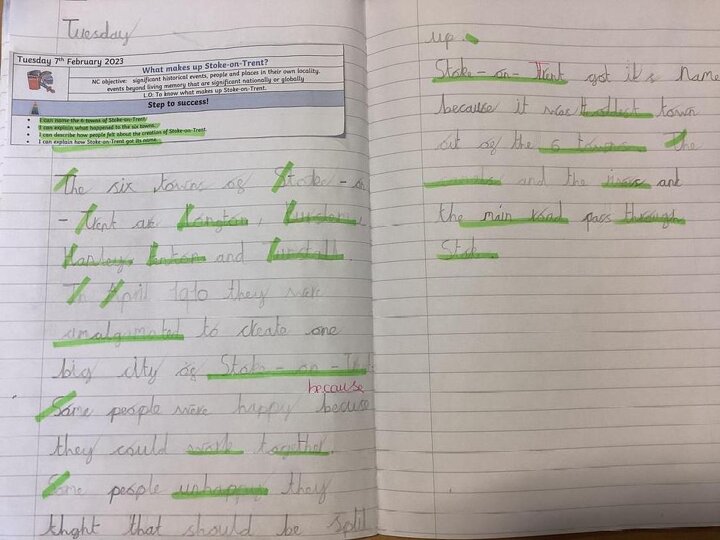 Tuesday
Tuesday 7th February 2023
What makes up Stoke-on-Trent?
NC objective: significant historical events, people and places in their own locality.
events beyond living memory that are significant nationally or globally
L.O: To know what makes up Stoke-on-Trent.
Step to success!
I can name the 6 towns of Stoke-on-Trent.
I can explain what happened to the six towns.
I can describe how people felt about the creation of Stoke-on-Trent.
I can explain how Stoke-on-Trent got its name.
The six towns of Stoke-on
-Trent are Longton, Burslem,
Hanley, Fenton and Tunstall.
In April 1910 they were
amalgamated to create one
big city of Stoke-on-Trent
because
Some people were happy becuse
they could work together.
Some people unhappy they
thght that should be split
up.
Stoke-on-Trent got it's name
because it was the oldest town
out of the 6 towns. The
canals and the rivers and
the main road pass through
Stok